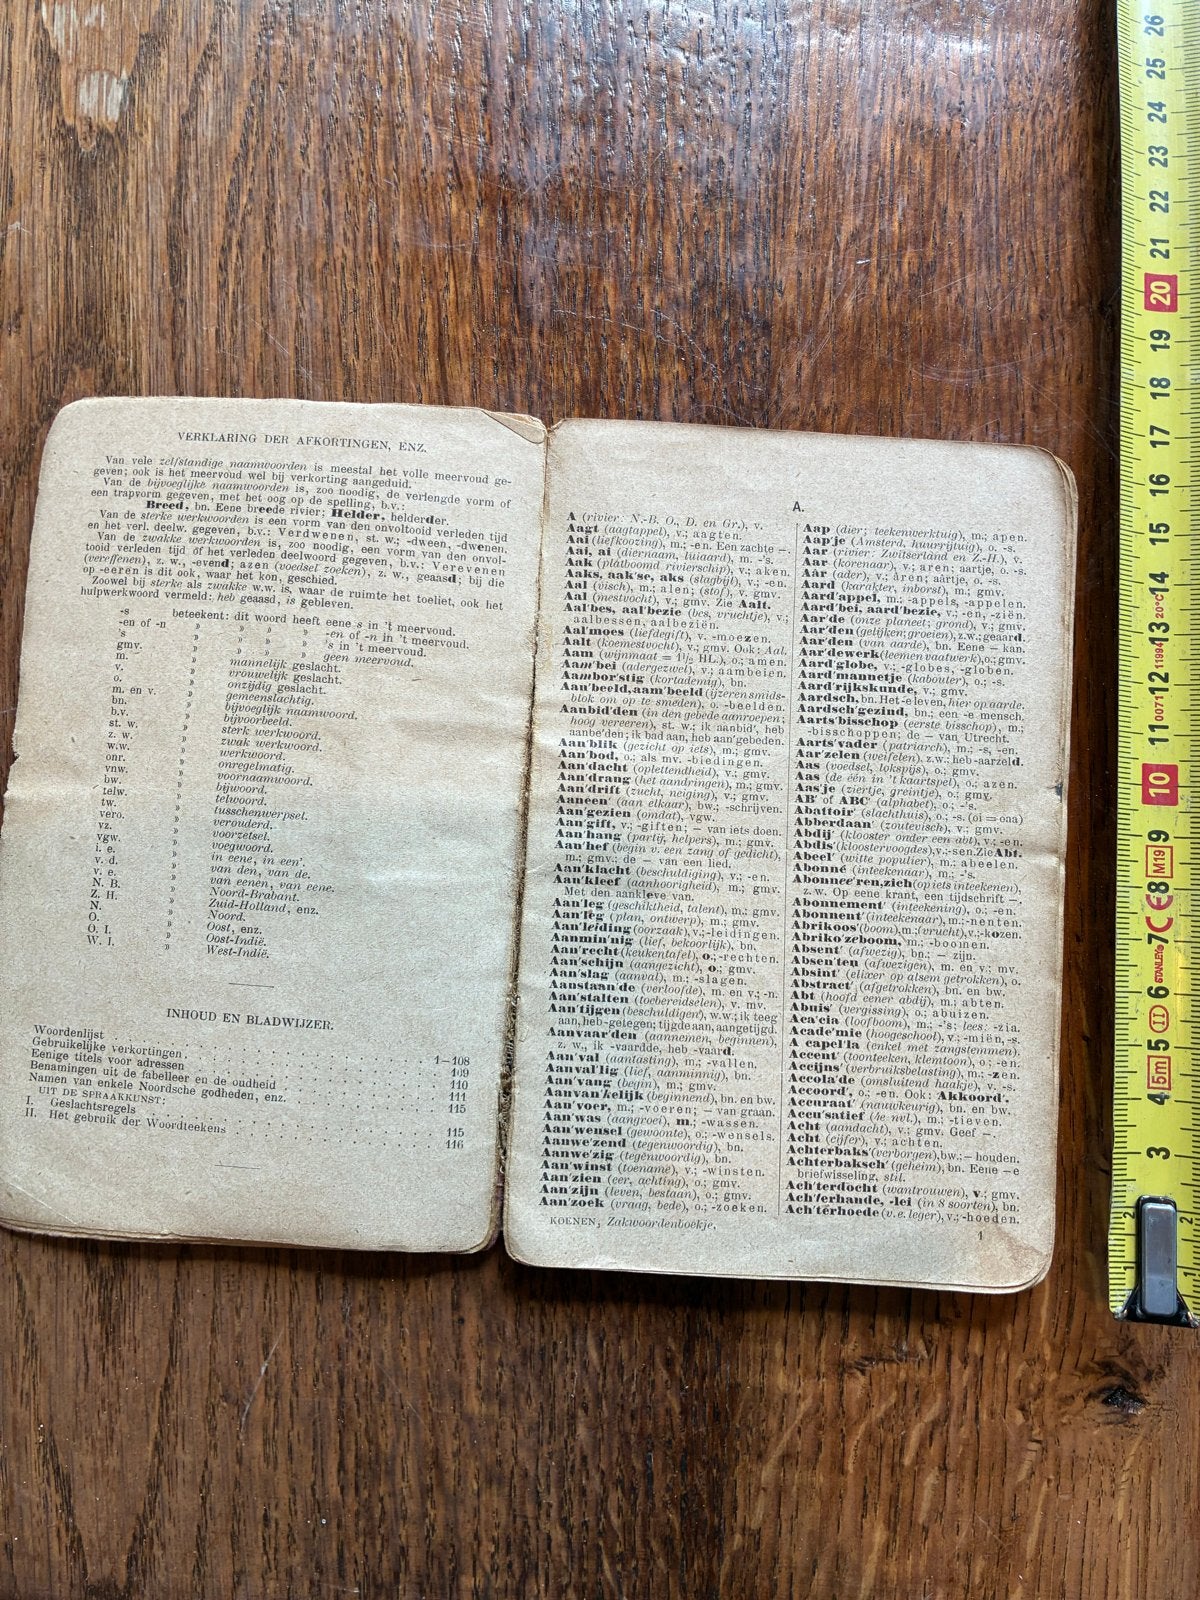 VERKLARING DER AFKORTINGEN, ENZ.
Van vele zelfstandige naamwoorden is meestal het volle meervoud ge-
geven; ook is het meervoud wel bij verkorting aangeduid.
Van de bijvoeglijke naamwoorden is, zoo noodig, de verlengde vorm of
een trapvorm gegeven, met het oog op de spelling, b.v.:
Breed, bn. Eene breede rivier; Helder, helderder.
Van de sterke werkwoorden is een vorm van den onvoltooid verleden tijd
en het verl. deelw. gegeven, b.v.: Verdwenen, st. w.; -dween, -dwenen.
Van de zwakke werkwoorden is, zoo noodig, een vorm van den onvol-
tooid verleden tijd óf het verleden deelwoord gegeven, b.v.: Verevenen
(vereffenen), z. w., -evend; azen (voedsel zoeken), z. w., geaasd; bij die
op -eeren is dit ook, waar het kon, geschied.
Zoowel bij sterke als zwakke w.w. is, waar de ruimte het toeliet, ook het
hulpwerkwoord vermeld: heb geaasd, is gebleven.
-s beteekent: dit woord heeft eene s in 't meervoud.
-en of -n » » » » -en of -n in 't meervoud.
's » » » » 's in 't meervoud.
gmv. » » » » geen meervoud.
m. » mannelijk geslacht.
v. » vrouwelijk geslacht.
o. » onzijdig geslacht.
m. en v. » gemeenslachtig.
bn. » bijvoegelijk naamwoord.
b.v. » bijvoorbeeld.
st. w. » sterk werkwoord.
z. w. » zwak werkwoord.
w.w. » werkwoord.
onr. » onregelmatig.
vnw. » voornaamwoord.
bw. » bijwoord.
telw. » telwoord.
tw. » tusschenwerpsel.
vero. » verouderd.
vz. » voorzetsel.
vgw. » voegwoord.
i. e. » in eene, in een'.
v. d. » van den, van de.
v. e. » van eenen, van eene.
N. B. » Noord-Brabant.
Z. H. » Zuid-Holland, enz.
N. » Noord.
O. » Oost, enz.
O. I. » Oost-Indië.
W. I. » West-Indië.
INHOUD EN BLADWIJZER.
Woordenlijst 1—108
Gebruikelijke verkortingen 109
Eenige titels voor adressen 110
Benamingen uit de fabelleer en de oudheid 111
Namen van enkele Noordsche godheden, enz. 115
UIT DE SPRAAKKUNST:
I. Geslachtsregels 115
II. Het gebruik der Woordteekens 116
A.
A (rivier: N.-B. O., D. en Gr.), v.
Aagt (aagtappel), v.; aagten.
Aai (liefkoozing), m.; -en. Een zachte —.
Aai, ai (diernaam, luiaard), m. -'s.
Aak (platboomd rivierschip), v.; aken.
Aaks, aak'se, aks (slagbijl), v.; -en.
Aal (visch), m.; alen; (stof), v. gmv.
Aal (mestvocht), v.; gmv. Zie Aalt.
Aal'bes, aal'bezie (bes, vruchtje), v.;
aalbessen, aalbeziën.
Aal'moes (liefdegift), v. -moezen.
Aalt (koemestvocht), v.; gmv. Ook: Aal.
Aam (wijnmaat = 1½ HL.), o.; amen.
Aam'bei (adergezwel), v.; aambeien.
Aambor'stig (kortademig), bn.
Aan'beeld, aam'beeld (ijzeren smids-
blok om op te smeden), o. -beelden.
Aanbid'den (in den gebede aanroepen;
hoog vereeren), st. w.; ik aanbid', heb
aanbe'den; ik bad aan, heb aan'gebeden.
Aan'blik (gezicht op iets), m.; gmv.
Aan'bod, o.; als mv. -biedingen.
Aan'dacht (oplettendheid), v.; gmv.
Aan'drang (het aandringen), m.; gmv.
Aan'drift (zucht, neiging), v.; gmv.
Aaneen' (aan elkaar), bw.; -schrijven.
Aan'gezien (omdat), vgw.
Aan'gift, v.; -giften; — van iets doen.
Aan'hang (partij, helpers), m.; gmv.
Aan'hef (begin v. een zang of gedicht),
m.; gmv.; de — van een lied.
Aan'klacht (beschuldiging), v.; -en.
Aan'kleef (aanhoorigheid), m.; gmv.
Met den aankleve van.
Aan'leg (geschiktheid, talent), m.; gmv.
Aan'leg (plan, ontwerp), m.; gmv.
Aan'leiding (oorzaak), v.; -leidingen.
Aanmin'nig (lief, bekoorlijk), bn.
Aan'recht (keukentafel), o.; -rechten.
Aan'schijn (aangezicht), o.; gmv.
Aan'slag (aanval), m.; -slagen.
Aanstaan'de (verloofde), m. en v.; -n.
Aan'stalten (toebereidselen), v. mv.
Aan'tijgen (beschuldigen), w.w.; ik teeg
aan, heb -getegen; tijgde aan, aangetijgd.
Aanvaar'den (aannemen, beginnen),
z. w., ik -vaardde, heb -vaard.
Aan'val (aantasting), m.; -vallen.
Aanval'lig (lief, aanminnig), bn.
Aan'vang (begin), m.; gmv.
Aanvan'kelijk (beginnend), bn. en bw.
Aan'voer, m.; -voeren; — van graan.
Aan'was (aangroei), m.; -wassen.
Aan'wensel (gewoonte), o.; -wensels.
Aanwe'zend (tegenwoordig), bn.
Aanwe'zig (tegenwoordig), bn.
Aan'winst (toename), v.; -winsten.
Aan'zien (eer, achting), o.; gmv.
Aan'zijn (leven, bestaan), o.; gmv.
Aan'zoek (vraag, bede), o.; -zoeken.
KOENEN, Zakwoordenboekje,
Aap (dier; teekenwerktuig), m.; apen.
Aap'je (Amsterd, huurrijtuig), o. -s.
Aar (rivier: Zwitserland en Z.-H.), v.
Aar (korenaar), v.; aren; aartje, o. -s.
Aâr (ader), v.; âren; aârtje, o. -s.
Aard (karakter, inborst), m.; gmv.
Aard'appel, m.; -appels, -appelen.
Aard'bei, aard'bezie, v.; -en, -ziën.
Aar'de (onze planeet; grond), v.; gmv.
Aar'den (gelijken; groeien), z.w.; geaard.
Aar'den (van aarde), bn. Eene — kan.
Aar'dewerk (leemen vaatwerk), o.; gmv.
Aard'globe, v.; -globes, -globen.
Aard'mannetje (kabouter), o.; -s.
Aard'rijkskunde, v.; gmv.
Aardsch, bn. Het -e leven, hier op aarde.
Aardsch'gezind, bn.; een -e mensch.
Aarts'bisschop (eerste bisschop), m.;
-bisschoppen; de — van Utrecht.
Aarts'vader (patriarch), m.; -s, -en.
Aar'zelen (weifelen), z.w.: heb -aarzeld.
Aas (voedsel, lokspijs), o.; gmv.
Aas (de één in 't kaartspel), o.; azen.
Aas'je (ziertje, greintje), o.; gmv.
AB' of ABC' (alphabet), o.; -'s.
Abattoir' (slachthuis), o.; -s. (oi = oaa)
Abberdaan' (zoutevisch), v.; gmv.
Abdij' (klooster onder een abt), v.; -en.
Abdis' (kloostervoogdes), v.; -sen. Zie Abt.
Abeel' (witte populier), m.; abeelen.
Abonné (inteekenaar), m.; -'s.
Abonnee'ren, zich (op iets inteekenen),
z.w. Op eene krant, een tijdschrift —.
Abonnement' (inteekening), o.; -en.
Abonnent' (inteekenaar), m.; -nenten.
Abrikoos' (boom), m.; (vrucht), v.; -kozen.
Abriko'zeboom, m.; -boomen.
Absent' (afwezig), bn.; — zijn.
Absen'ten (afwezigen), m. en v.; mv.
Absint' (elixer op alsem getrokken), o.
Abstract' (afgetrokken), bn. en bw.
Abt (hoofd eener abdij), m.; abten.
Abuis' (vergissing), o.; abuizen.
Aca'cia (loofboom), m.; -'s; lees: -zia.
Acade'mie (hoogeschool), v.; -miën, -s.
A capel'la (enkel met zangstemmen).
Accent' (toonteeken, klemtoon), o.; -en.
Accijns' (verbruiksbelasting), m.; -zen.
Accola'de (omsluitend haakje), v. -s.
Accoord', o.; -en. Ook: 'Akkoord'.
Accuraat' (nauwkeurig), bn. en bw.
Accu'satief (4e nvl.), m.; -tieven.
Acht (aandacht), v.; gmv. Geef —.
Acht (cijfer), v.; achten.
Achterbaks' (verborgen), bw.; — houden.
Achterbaksch' (geheim), bn. Eene —e
briefwisseling, stil.
Ach'terdocht (wantrouwen), v.; gmv.
Ach'terhande, -lei (in 8 soorten), bn.
Ach'terhoede (v. e. leger), v.; -hoeden.
1
26
25
24
23
22
21
20
19
18
17
16
15
14
20°C
13
11994
12
0071
11
10
9
M19
8
CE
7
STANLEY
6
II
5
5m
4
3
2
1